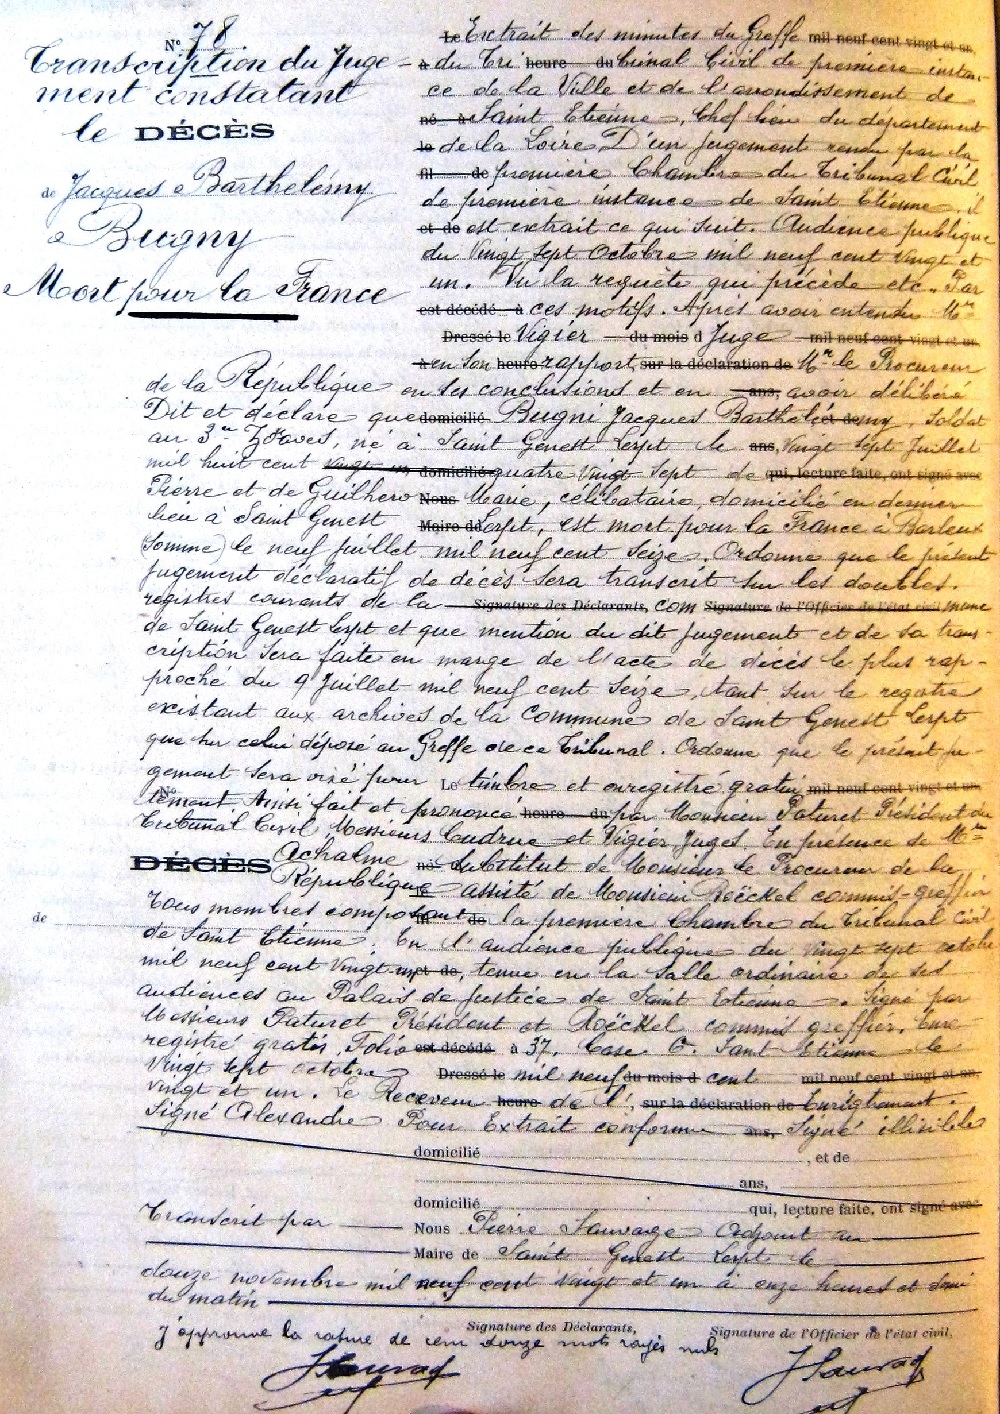 N° 78
Transcription du Juge-
ment constatant
le DÉCÈS
de Jacques Barthélémy
Bugny
Mort pour la France
Le Extrait des minutes du Greffe mil neuf cent vingt et un.
à du Tri heure du bunal Civil de première instan-
ce de la Ville et de l'arrondissement de
né à Saint Etienne, Chef lieu du département
le de la Loire D'un jugement rendu par la
fil de première Chambre du Tribunal Civil
de première instance de Saint Etienne il
et de est extrait ce qui suit. Audience publique
du Vingt sept Octobre mil neuf cent vingt et
un. Vu la requête qui précède etc. Par
est décédé à ces motifs. Après avoir entendu Mr
Dressé le Vigier du mois d Juge mil neuf cent vingt et un.
à en son heure rapport, sur la déclaration de Mr le Procureur
de la République en ses conclusions et en ans, avoir délibéré
Dit et déclare que domicilié Bugni Jacques Barthélé et de my, Soldat
au 3e Zouaves, né à Saint Genest Lerpt le ans, Vingt sept Juillet
mil huit cent vingt un domicilié quatre vingt sept de qui, lecture faite, ont signé avec
Pierre et de Guilhero Nous Marie, célibataire, domicilié en dernier
lieu à Saint Genest Maire de Lerpt, est mort pour la France à Barleux
(Somme) le neuf juillet mil neuf cent seize. Ordonne que le présent
jugement déclaratif de décès sera transcrit sur les doubles
registres courants de la Signature des Déclarants, com Signature de l'Officier de l'état civil mune
de Saint Genest Lerpt et que mention du dit jugement et de sa trans-
cription sera faite en marge de l'acte de décès le plus rap-
proché du 9 Juillet mil neuf cent seize, tant sur le registre
existant aux archives de la Commune de Saint Genest Lerpt
que sur celui déposé au Greffe de ce Tribunal. Ordonne que le présent ju-
gement sera visé pour Le timbre et enregistré gratui mil neuf cent vingt et un.
N° tement. Ainsi fait et prononcé heure du par Monsieur Paturet Président du
Tribunal Civil Messieurs Cudrue et Vigier Juges. En présence de Mr
DÉCÈS Achalme né Substitut de Monsieur le Procureur de la
République assisté de Monsieur Roëckel commis-greffier
de Tous membres composant de la première Chambre du Tribunal Civil
de Saint Etienne. En l'audience publique du vingt sept octobre
mil neuf cent vingt un et de, tenue en la salle ordinaire de ses
audiences au Palais de Justice de Saint Etienne. Signé par
Messieurs Paturet Président et Roëckel commis greffier. Enre-
registré gratis, Folio est décédé à 37. Case 6. Saint Etienne le
Vingt sept octobre Dressé le mil neuf du mois d cent mil neuf cent vingt et un.
vingt et un. Le Receveur heure de l', sur la déclaration de Enregistrement.
Signé Alexandre Pour Extrait conforme ans, Signé illisible
domicilié , et de
ans,
domicilié qui, lecture faite, ont signé avec
Transcrit par Nous Pierre Sauvage Adjoint au
Maire de Saint Genest Lerpt le
douze novembre mil neuf cent vingt et un à onze heures et demi
du matin
Signature des Déclarants, Signature de l'Officier de l'état civil.
J'approuve la rature de cent douze mots rayés nuls
J Sauvage J Sauvage